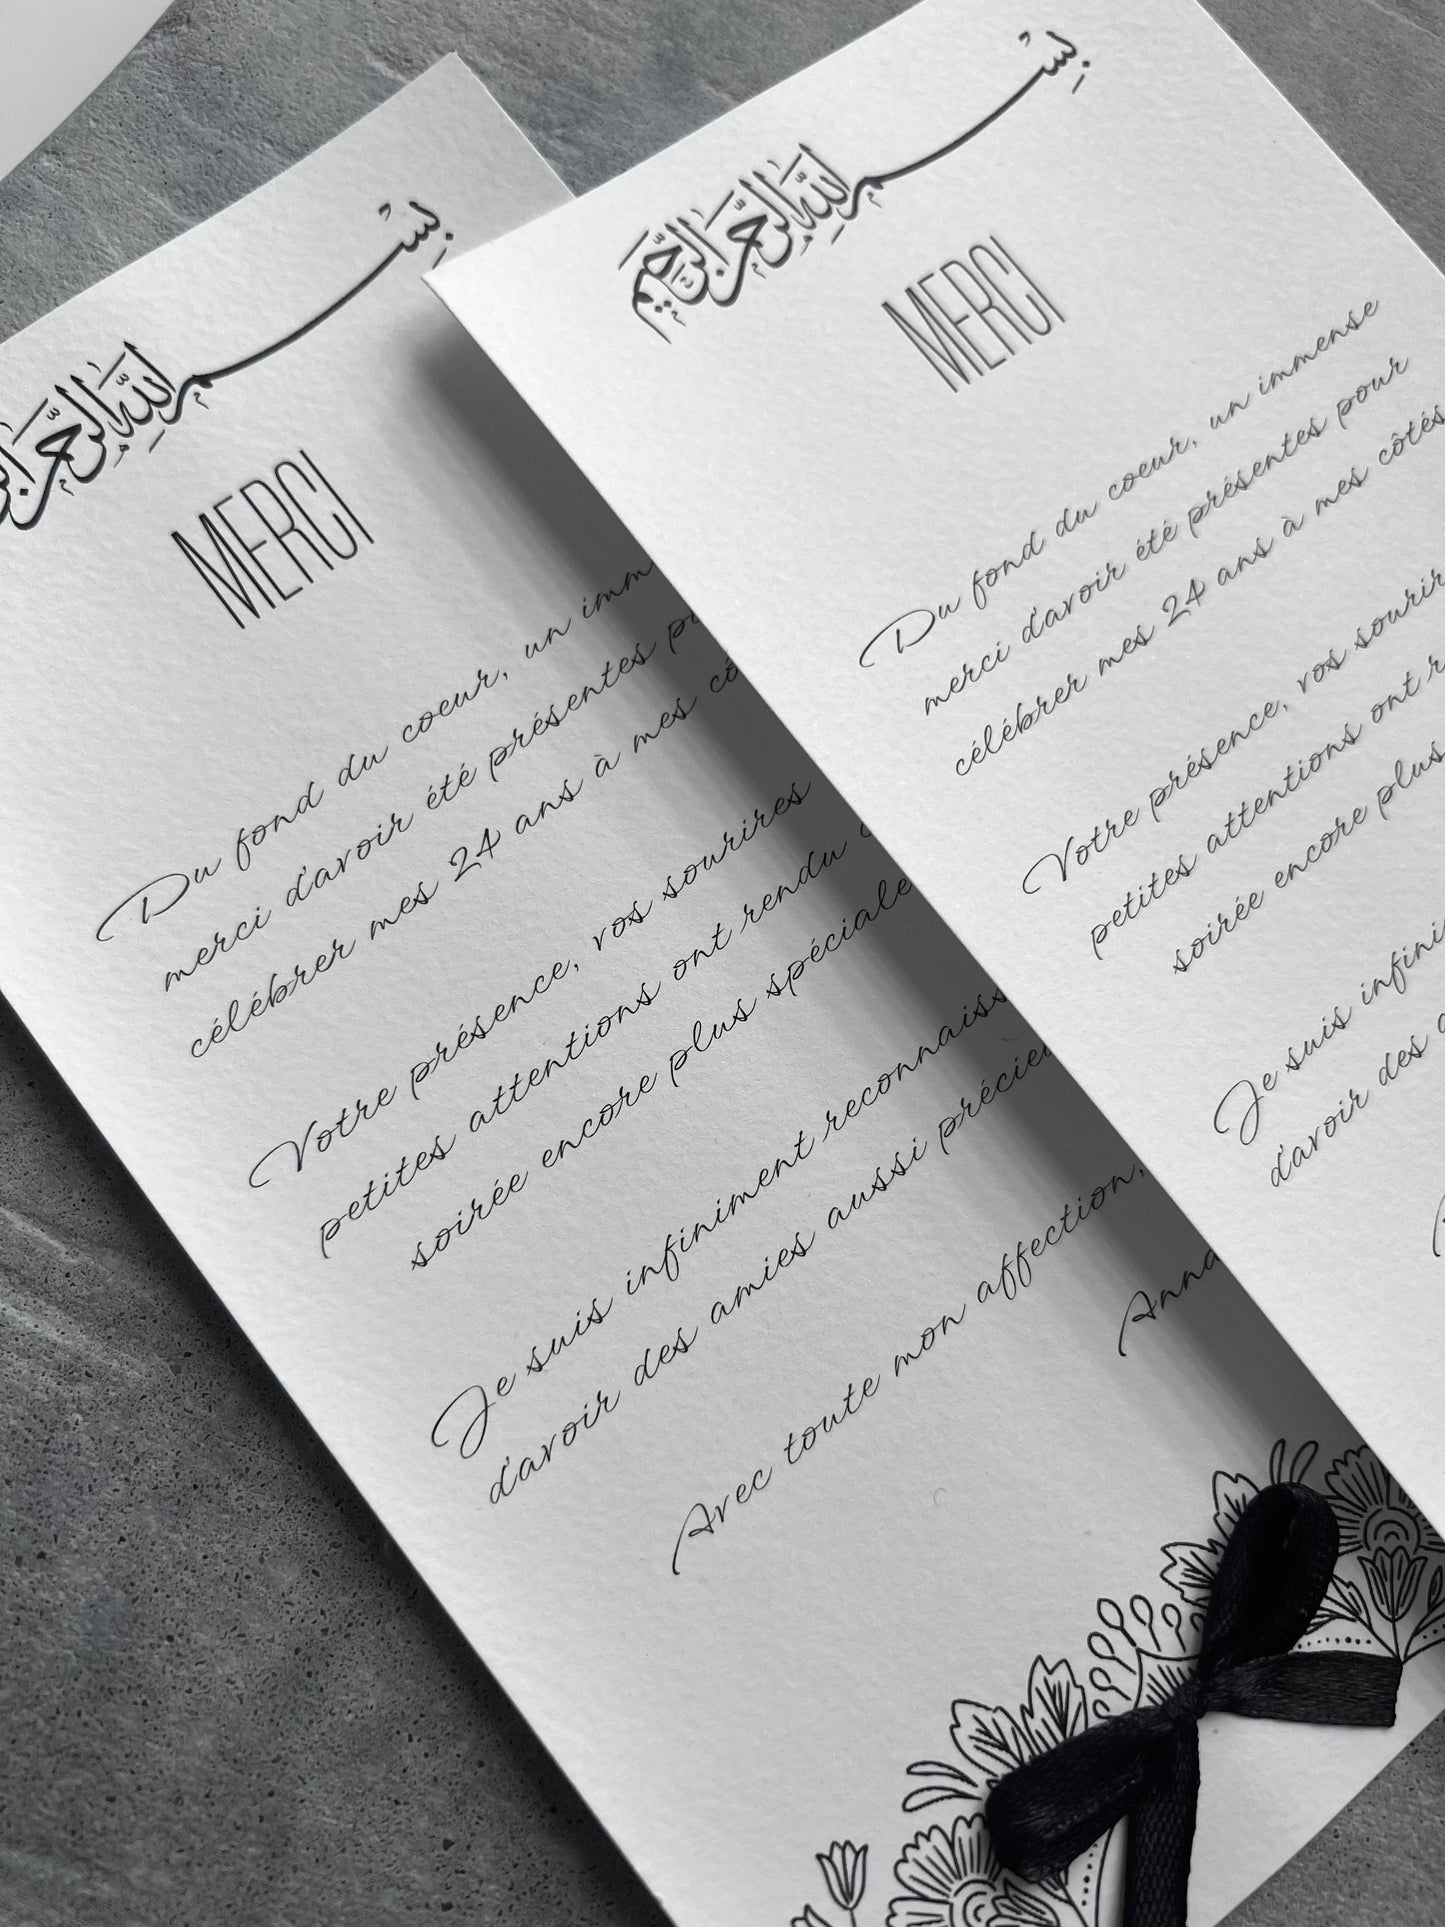 بِسْمِ اللَّهِ الرَّحْمَنِ
MERCI
Du fond du coeur, un imm
merci d'avoir été présentes p
célébrer mes 24 ans à mes cô
Votre présence, vos sourires
petites attentions ont rendu
soirée encore plus spéciale
Je suis infiniment reconnaiss
d'avoir des amies aussi précie
Avec toute mon affection,
Anna
بِسْمِ اللَّهِ الرَّحْمَنِ الرَّحِيمِ
MERCI
Du fond du coeur, un immense
merci d'avoir été présentes pour
célébrer mes 24 ans à mes côtés
Votre présence, vos sourir
petites attentions ont r
soirée encore plus
Je suis infini
d'avoir des